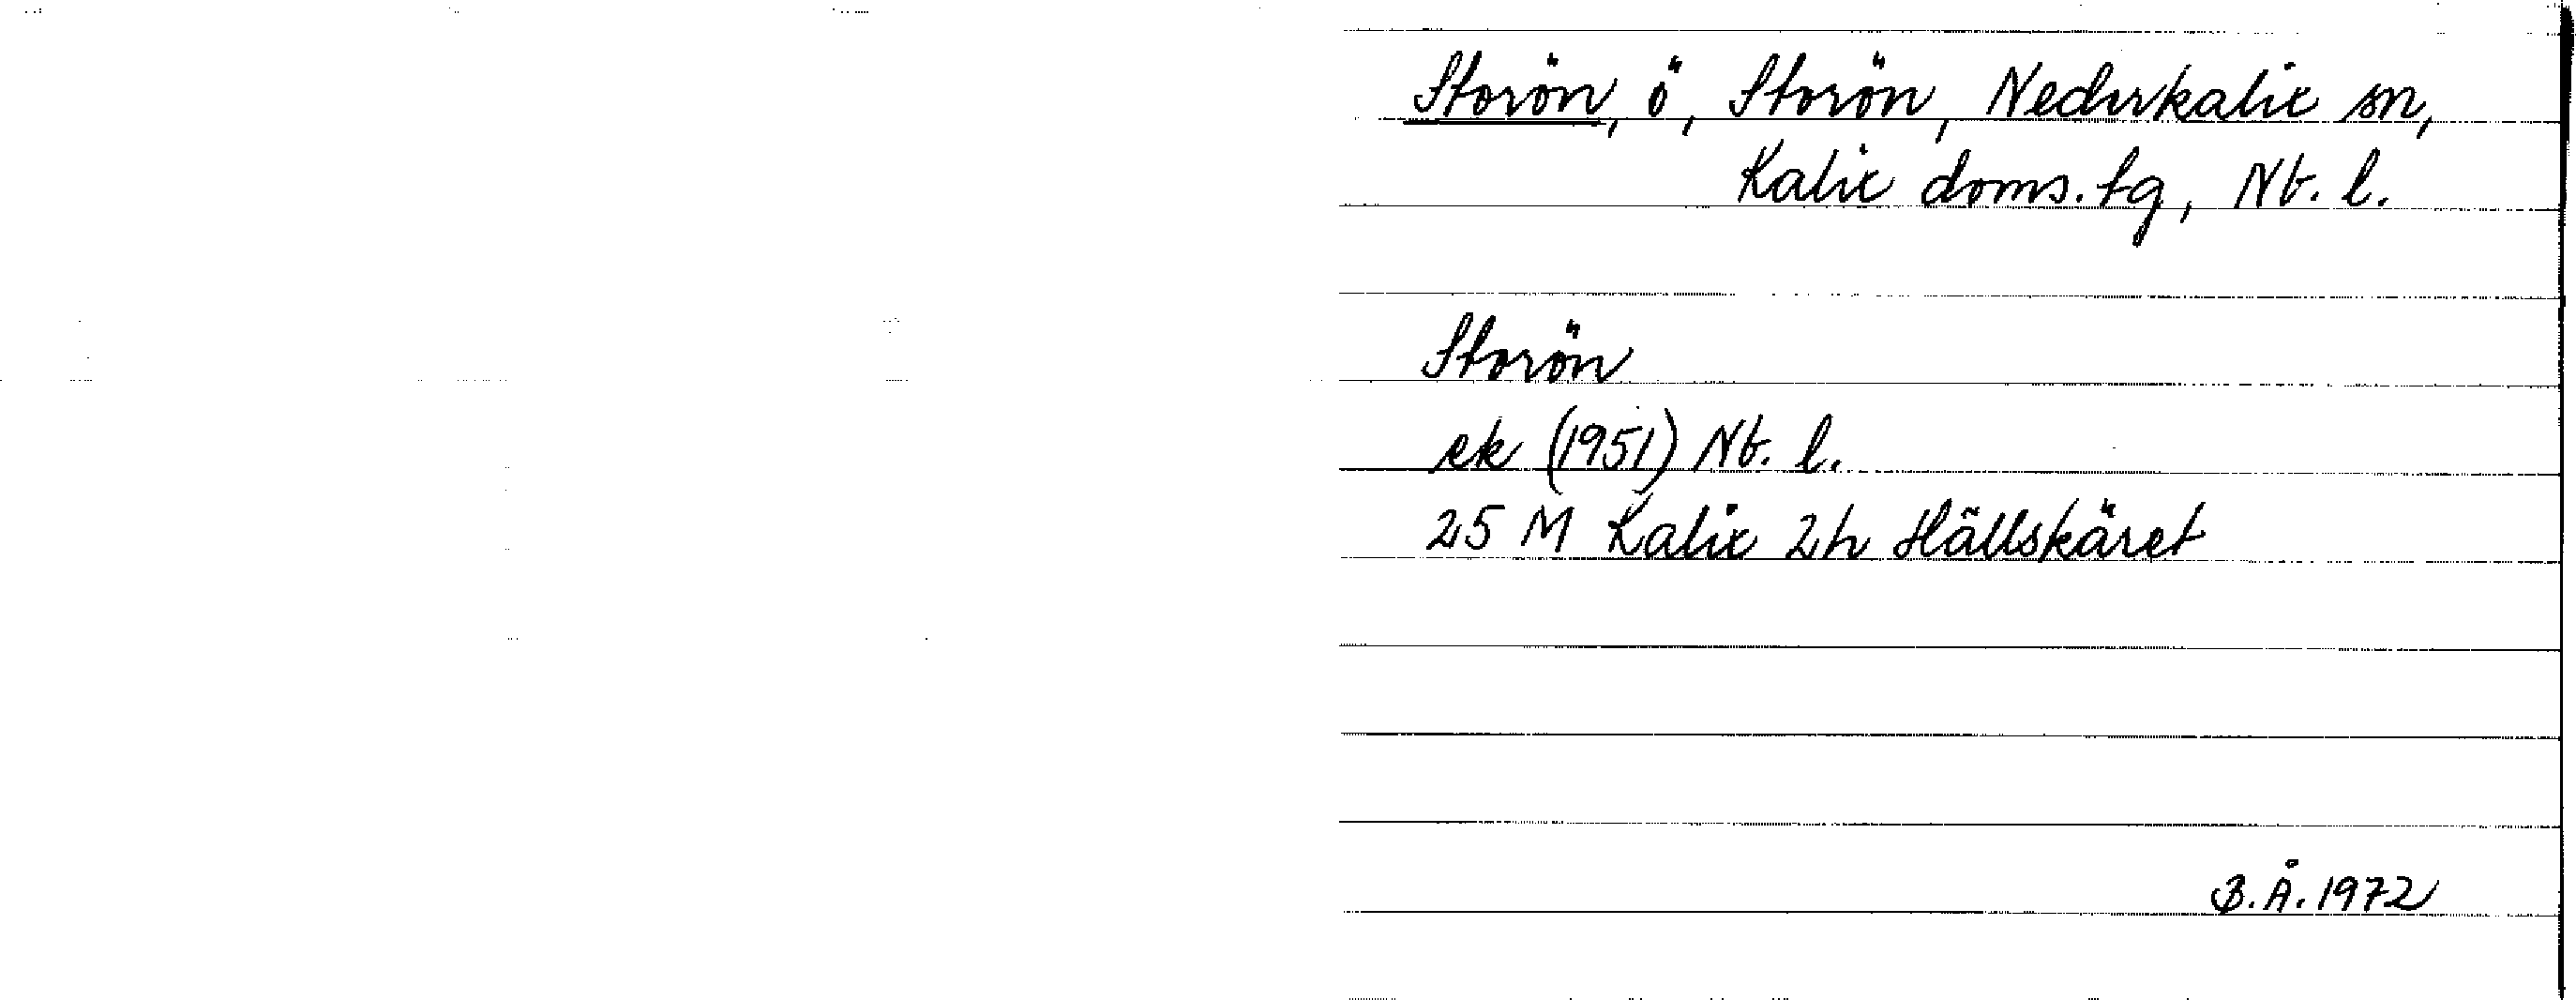 Storön, ö, Storön, Nederkalix sn,
Kalix doms. tg, Nb. l.
Storön
ek (1951) Nb. l.
25 M Kalix 2h Hällskäret
B.Å. 1972